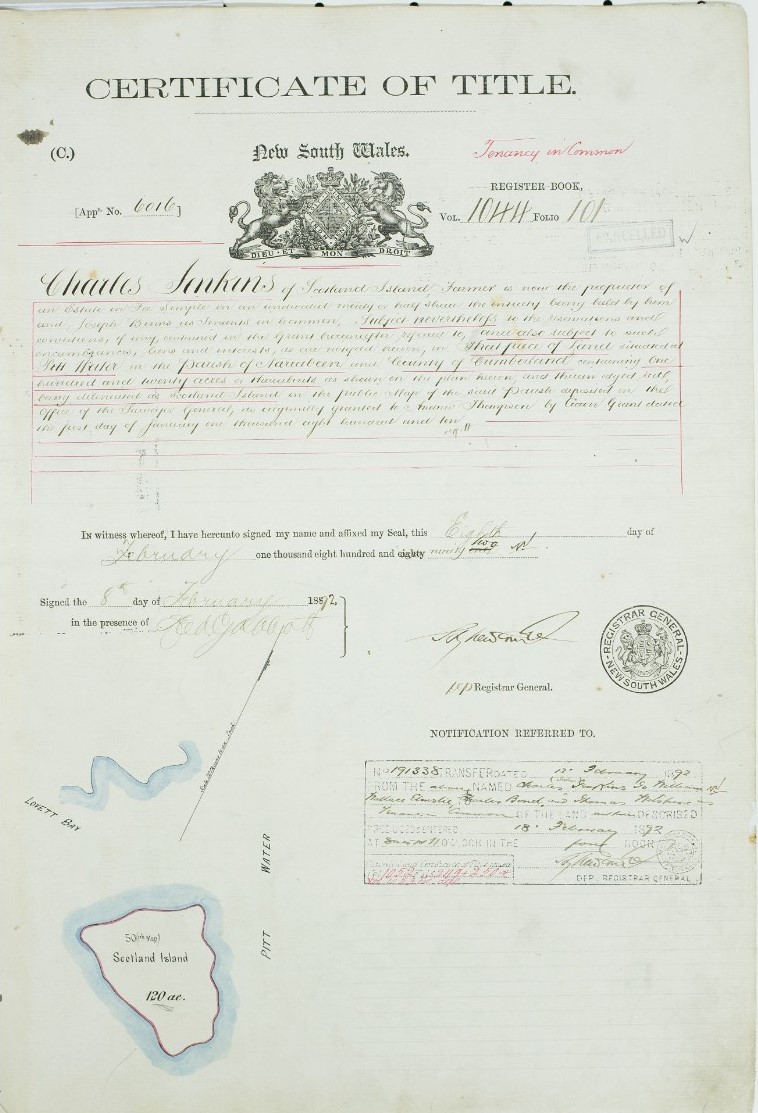 CERTIFICATE OF TITLE.
(C.)
New South Wales.
Tenancy in Common
[Appn. No. 6016]
REGISTER BOOK,
VOL. 1044 FOLIO 101
CANCELLED
DIEU ET MON DROIT
Charles Jenkins of Scotland Island Farmer is now the proprietor of
an Estate in Fee Simple in an undivided moiety or half share the entirety being held by him
and Joseph Benns as Tenants in Common, Subject nevertheless to the reservations and
conditions, if any, contained in the Grant hereinafter referred to, and also subject to such
encumbrances, liens and interests, as are notified hereon, in That piece of Land situated at
Pitt Water in the Parish of Narrabeen and County of Cumberland containing One
hundred and twenty acres or thereabouts as shown on the plan hereon, and therein edged red,
being delineated as Scotland Island in the public Map of the said Parish deposited in the
Office of the Surveyor General, as originally granted to Andrew Thompson by Crown Grant dated
the first day of January one thousand eight hundred and ten
In witness whereof, I have hereunto signed my name and affixed my Seal, this Eighth day of
February one thousand eight hundred and eighty ninety two
Signed the 8th day of February 1892,
in the presence of
Registrar General.
REGISTRAR GENERAL NEW SOUTH WALES
NOTIFICATION REFERRED TO.
No 191338 TRANSFER DATED 12th February 1892
FROM THE above NAMED Charles Jenkins to William
Wallace Charles Bond and Thomas
Tenants in Common OF THE LAND within DESCRIBED
PRODUCED & ENTERED 18th February 1892
AT O'CLOCK IN THE fore NOON
DEP. REGISTRAR GENERAL
1052 249 & 250
LOVETT BAY
PITT WATER
50 (on Map)
Scotland Island
120 ac.